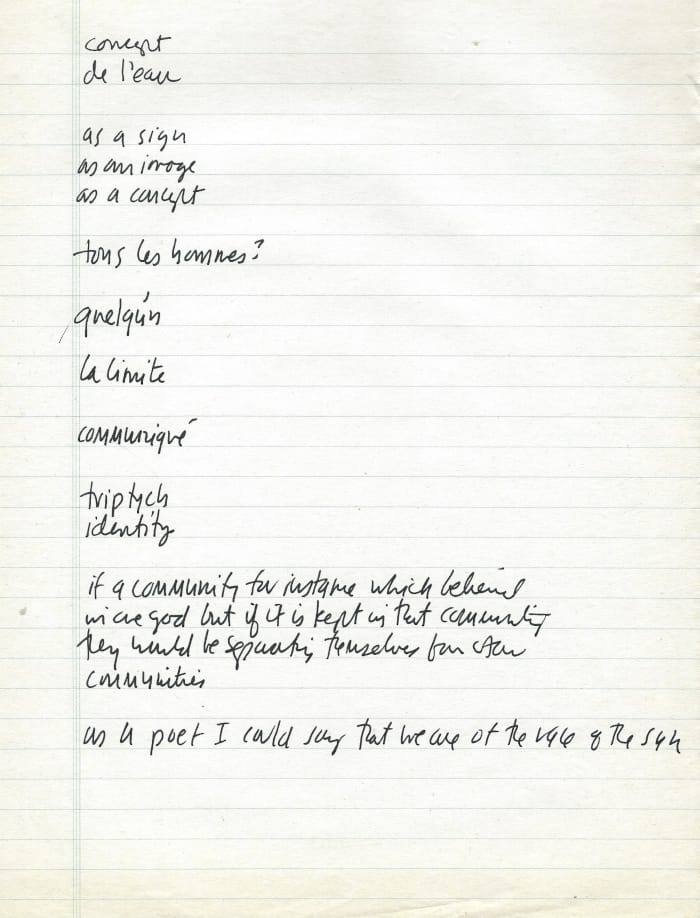 concept
de l'eau
as a sign
as an image
as a concept
tous les hommes?
quelqún
la limite
communiqué
triptych
identity
if a community for instance which believed
in one god but if it is kept in that community
they would be separating themselves from other
communities
as a poet I could say that we are of the race of the sun